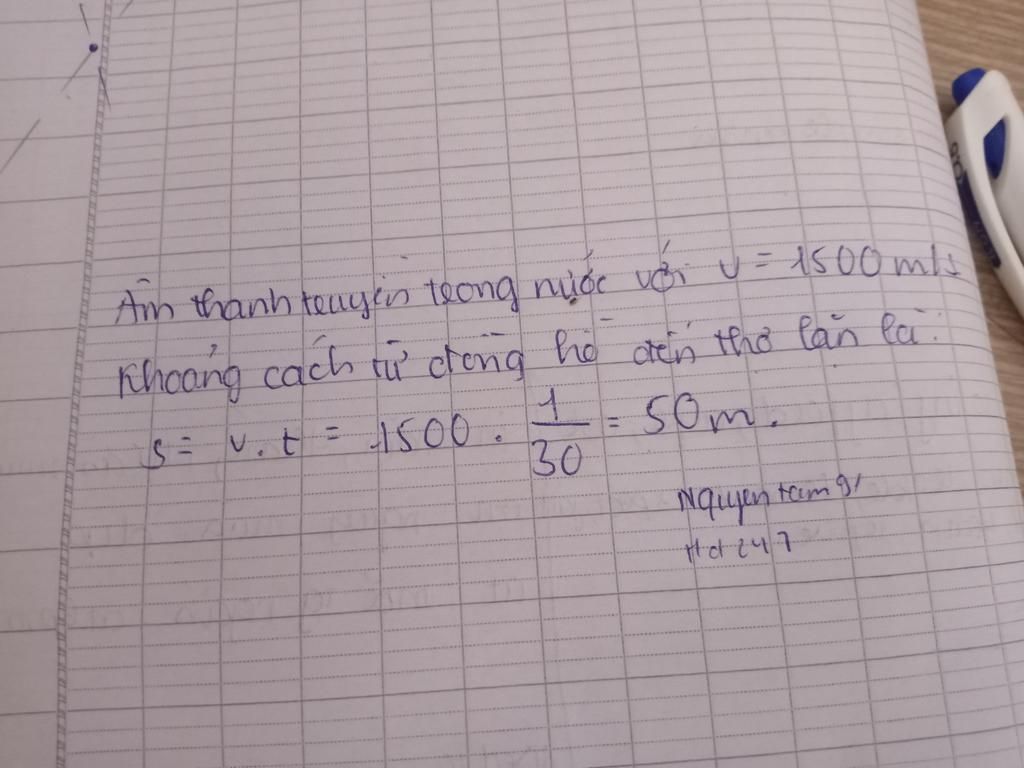 Âm thanh truyền trong nước với v = 1500 m/s
Khoảng cách từ đồng hồ đến thợ lặn là:
s = v.t = 1500 . 1/30 = 50m.
Nguyentam91
Hd247